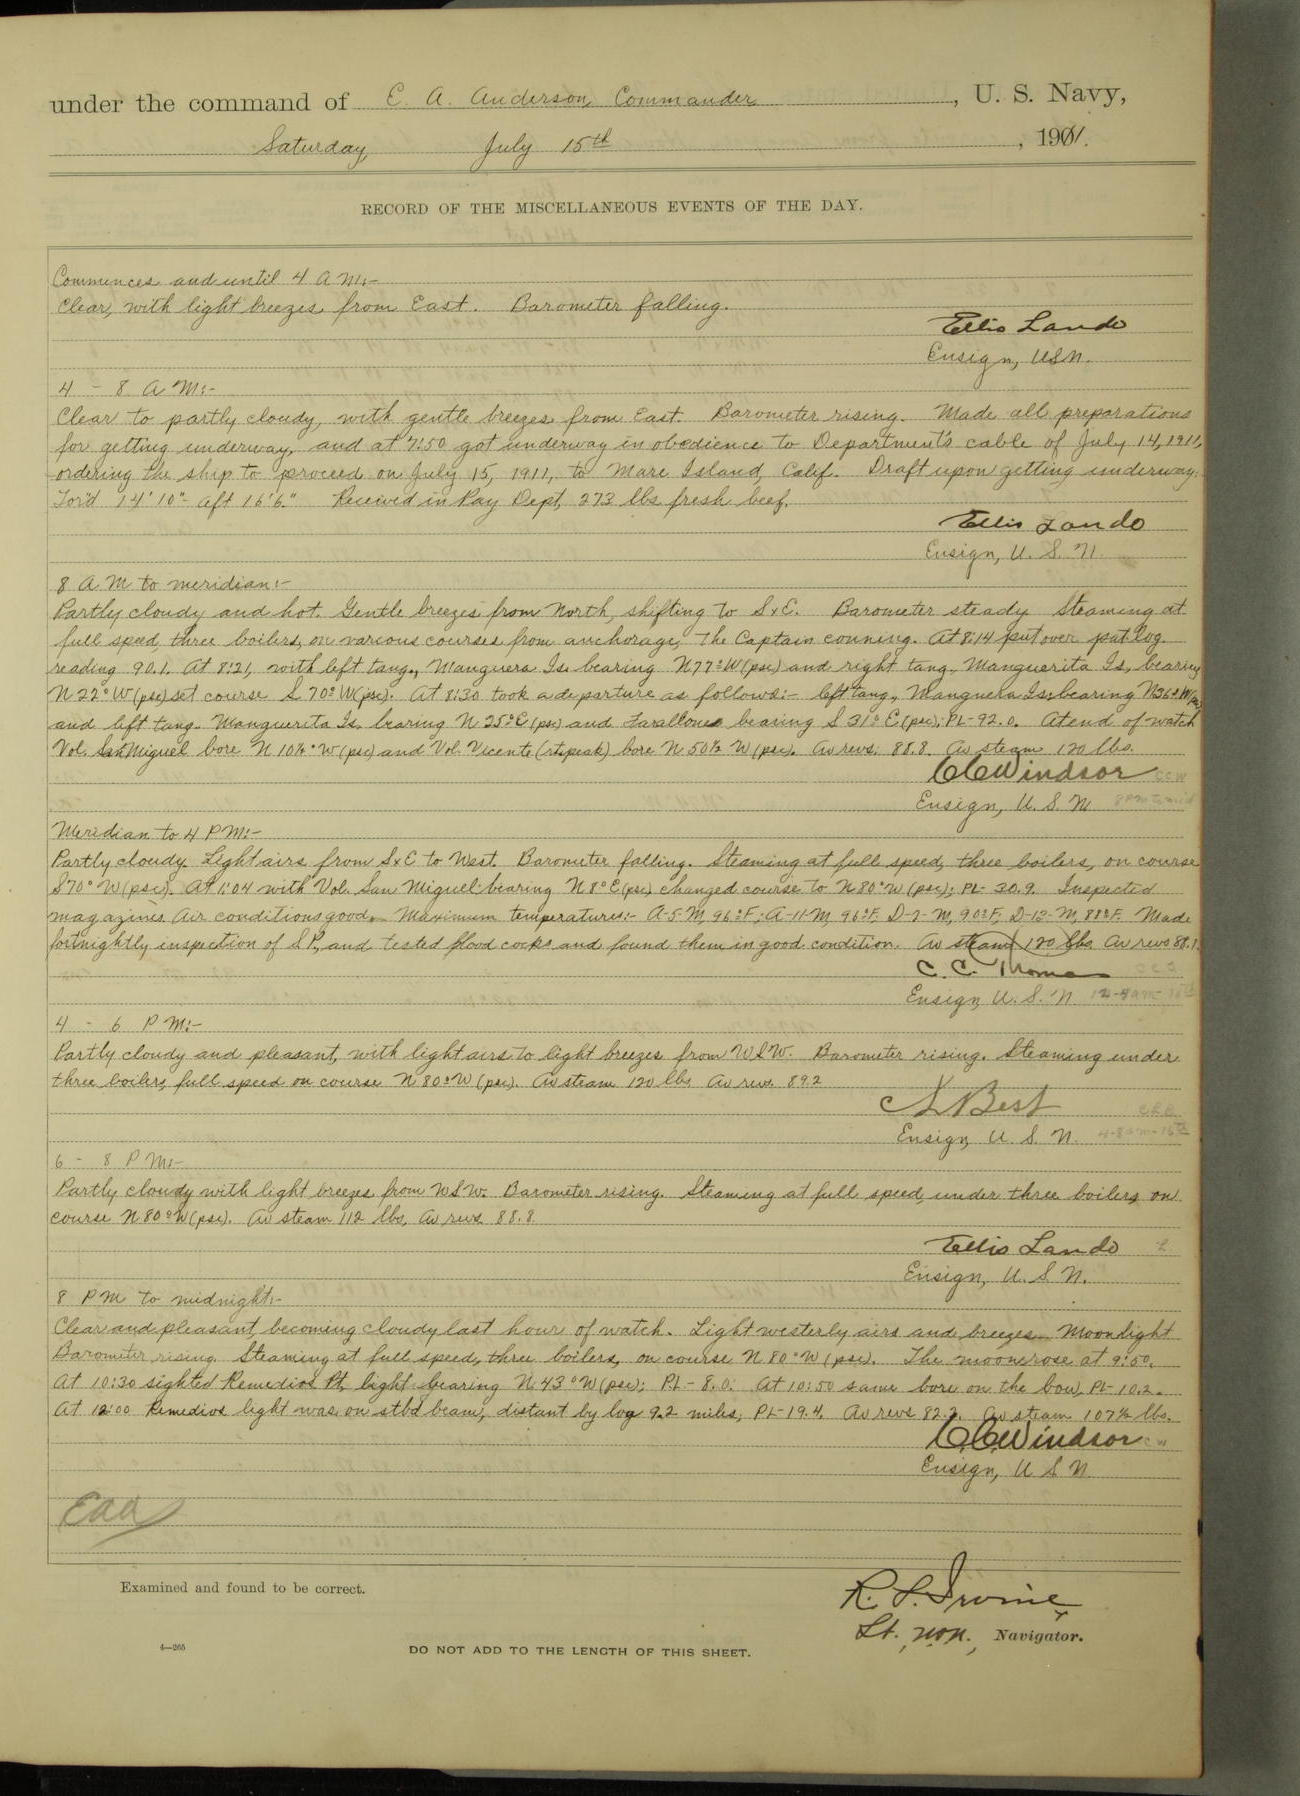 under the command of E. A. Anderson, Commander, U. S. Navy,
Saturday July 15th, 1911.
RECORD OF THE MISCELLANEOUS EVENTS OF THE DAY.
Commences and until 4 A M:-
Clear, with light breezes from East. Barometer falling.
Ellis Lando
Ensign, USN.
4 - 8 A M:-
Clear to partly cloudy, with gentle breezes from East. Barometer rising. Made all preparations
for getting underway, and at 7:50 got underway in obedience to Department's cable of July 14, 1911,
ordering the ship to proceed on July 15, 1911, to Mare Island, Calif. Draft upon getting underway.
For'd 14' 10" Aft 16' 6". Received in Pay Dept, 273 lbs fresh beef.
Ellis Lando
Ensign, U. S. N.
8 A M to meridian:-
Partly cloudy and hot. Gentle breezes from North, shifting to SxE. Barometer steady Steaming at
full speed, three boilers, on various courses from anchorage, The Captain conning. At 8:14 put over pat. log
reading 90.1. At 8:21, with left tang., Manguera Is. bearing N 77° W (psc) and right tang. Manguerita Is, bearing
N 22° W (psc) set course S 70° W (psc). At 8:30 took a departure as follows:- left tang., Manguera Is. bearing N 36° W (psc)
and left tang. Manguerita Is. bearing N 25° E (psc) and Farallones bearing S 31° E (psc); PL- 92.0. At end of watch
Vol. San Miguel bore N 10½° W (psc) and Vol. Vicente (rt. peak) bore N 50½ W (psc). Av revs. 88.8. Av steam 120 lbs.
C C Windsor CCW
Ensign, U. S. N 8 PM to mid
Meridian to 4 P M:-
Partly cloudy. Light airs from SxE to West. Barometer falling. Steaming at full speed, three boilers, on course
S 70° W (psc). At 1:04 with Vol. San Miguel bearing N 8° E (psc) changed course to N 80° W (psc); PL- 30.9. Inspected
magazines. Air conditions good. Maximum temperatures:- A-5-M, 96° F; A-11-M, 96° F, D-7-M, 90° F, D-12-M, 88° F. Made
fortnightly inspection of S P., and tested flood cocks and found them in good condition. Av steam 120 lbs Av revs 88.1.
C. C. Thomas
Ensign, U. S. N
4 - 6 P M:-
Partly cloudy and pleasant, with light airs to light breezes from WSW. Barometer rising. Steaming under
three boilers, full speed on course N 80° W (psc). Av steam 120 lbs Av revs. 89.2
Best
Ensign, U. S. N. 4-8 am-16th
6 - 8 P M:-
Partly cloudy with light breezes from WSW. Barometer rising. Steaming at full speed, under three boilers, on
course N 80° W (psc). Av steam 112 lbs, Av revs. 88.8
Ellis Lando
Ensign, U. S. N.
8 P M to midnight:-
Clear and pleasant, becoming cloudy last hour of watch. Light westerly airs and breezes. Moonlight
Barometer rising. Steaming at full speed, three boilers, on course N 80° W (psc). The moon rose at 9:50.
At 10:30 sighted Remedios Pt. light bearing N 43° W (psc); PL- 8.0. At 10:50 same bore on the bow, PL- 10.2.
At 12:00 Remedios light was on stbd beam, distant by log 9.2 miles; PL- 19.4. Av revs 82.2. Av steam 107½ lbs.
C. C. Windsor
Ensign, U S N
EAA
Examined and found to be correct.
R. L. Irvine
Lt., Navigator.
4—265
DO NOT ADD TO THE LENGTH OF THIS SHEET.